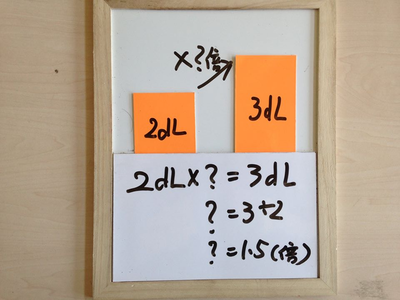 ×?倍
2dL
3dL
2dL×?=3dL
?=3÷2
?=1.5(倍)